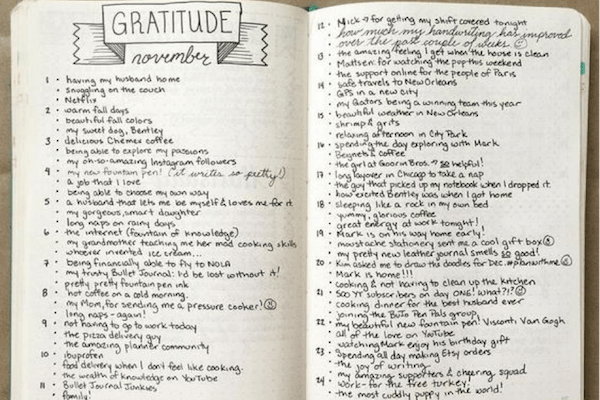 GRATITUDE
november
1 • having my husband home
• snuggling on the couch
• Netflix
2 • warm fall days
• beautiful fall colors
• my sweet dog, Bentley
3 • delicious Chemex coffee
• being able to explore my passions
• my oh-so-amazing Instagram followers
4 • my new fountain pen! (it writes so pretty!)
• a job that I love
• being able to choose my own way
5 • a husband that lets me be myself & loves me for it
• my gorgeous, smart daughter
• long naps on rainy days
6 • the internet (fountain of knowledge)
• my grandmother teaching me her mad cooking skills
• whoever invented ice cream...
7 • being financially able to fly to NOLA
• my trusty Bullet Journal: I'd be lost without it!
• pretty pretty fountain pen ink
8 • hot coffee on a cold morning.
• my Mom, for sending me a pressure cooker!
• long naps - again!
9 • not having to go to work today
• the pizza delivery guy
• the amazing planner community
10 • ibuprofen
• food delivery when I don't feel like cooking.
• the wealth of knowledge on YouTube
11 • Bullet Journal Junkies
• family!
12 • Mick → for getting my shift covered tonight
• how much my handwriting has improved
over the past couple of weeks
13 • the amazing feeling I get when the house is clean
• Mattsen: for watching the pup this weekend
• the support online for the people of Paris
14 • safe travels to New Orleans
• GPS in a new city
• my Gators being a winning team this year
15 • beautiful weather in New Orleans
• shrimp & grits
• relaxing afternoon in City Park
16 • spending the day exploring with Mark
• Beignets & coffee
• the girl at Goorin Bros. → so helpful!
17 • long layover in Chicago to take a nap
• the guy that picked up my notebook when I dropped it.
• how excited Bentley was when I got home
18 • sleeping like a rock in my own bed
• yummy, glorious coffee
• great energy at work tonight!
19 • Mark is on his way home early!
• moustache stationery sent me a cool gift box
• my pretty new leather journal smells so good!
20 • Kim asked me to draw the doodles for Dec. #planwithme
• Mark is home!!!
• cooking & not having to clean up the kitchen
21 • 500 YT subscribers on day ONE! what?!?
• cooking dinner for the best husband ever
• joining the BuJo Pen Pals group
22 • my beautiful new fountain pen! Visconti Van Gogh
• all of the love on YouTube
• watching Mark enjoy his birthday gift
23 • spending all day making Etsy orders
• the joy of writing
• my amazing supporters & cheering squad
24 • Work - for the free turkey!
• the most cuddly puppy in the world!